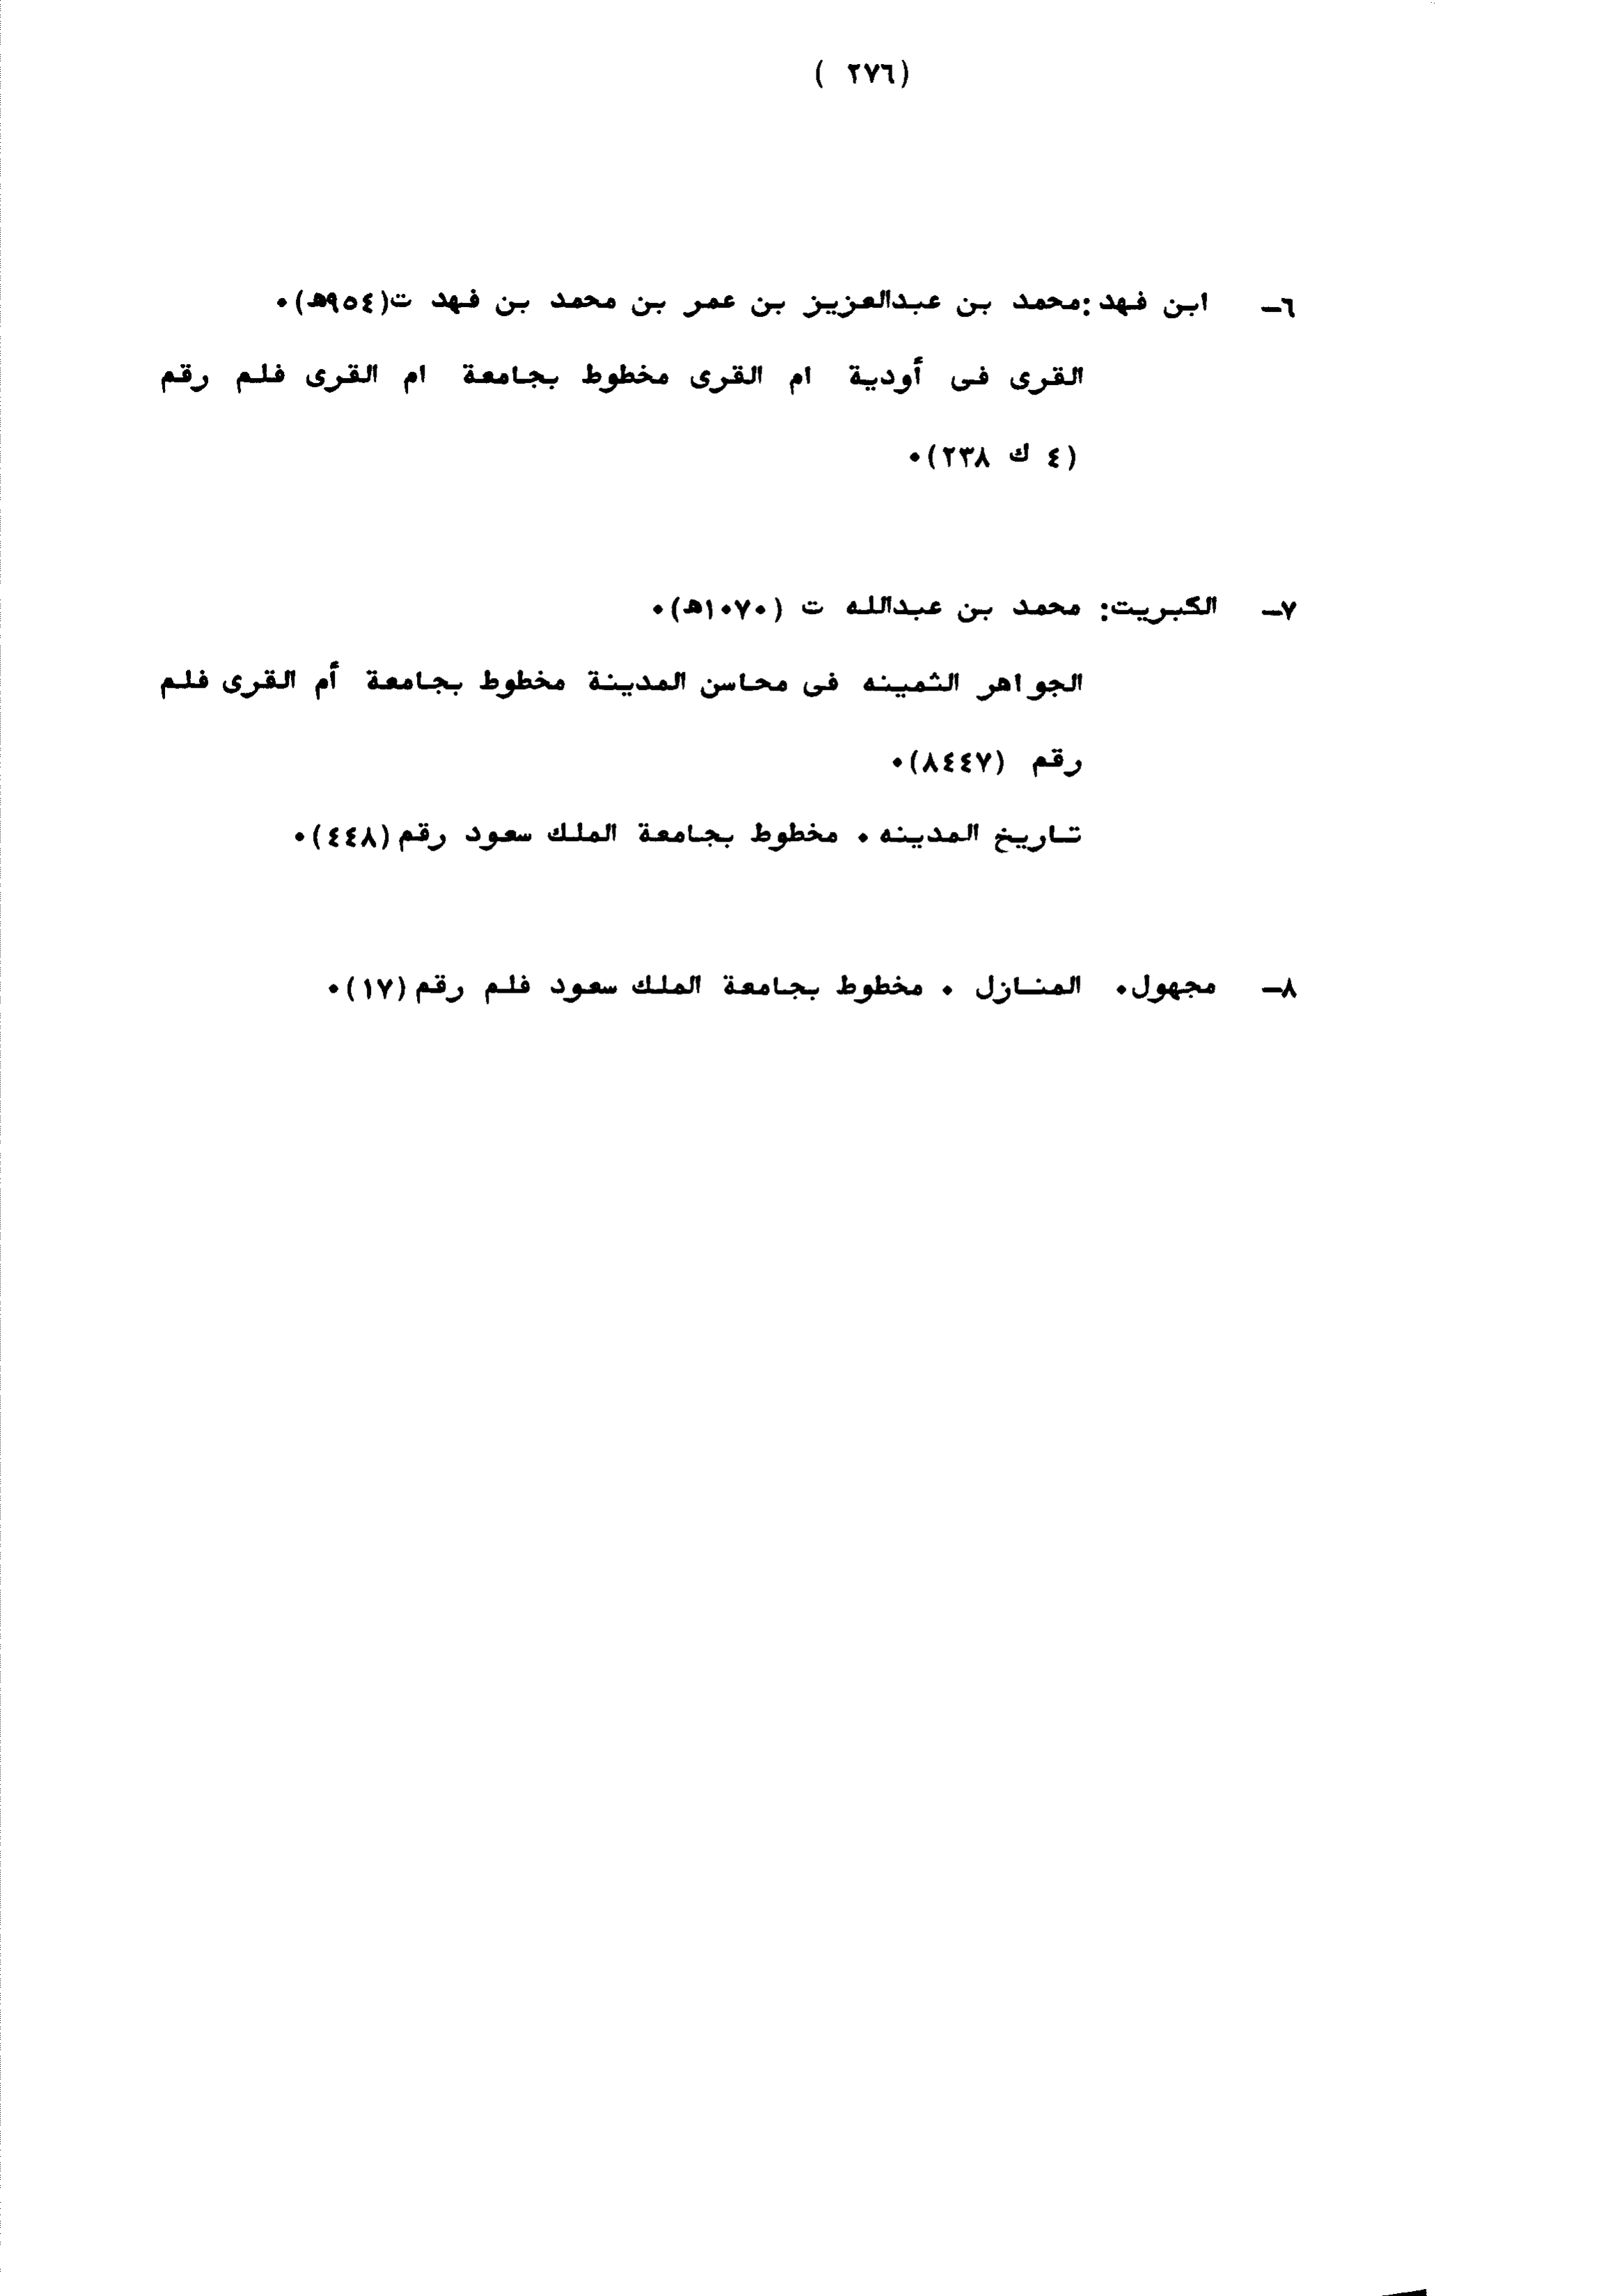 ( ٢٧٦)
٦- ابن فهد :محمد بن عبدالعزيز بن عمر بن محمد بن فهد ت(٩٥٤هـ)٠
القرى فى أودية ام القرى مخطوط بجامعة ام القرى فلم رقم
(٤ ك ٢٣٨)٠
٧- الكبريت: محمد بن عبدالله ت (١٠٧٠هـ)٠
الجواهر الثمينه فى محاسن المدينة مخطوط بجامعة أم القرى فلم
رقم (٨٤٤٧)٠
تاريخ المدينه ٠ مخطوط بجامعة الملك سعود رقم (٤٤٨)٠
٨- مجهول٠ المنازل ٠ مخطوط بجامعة الملك سعود فلم رقم (١٧)٠